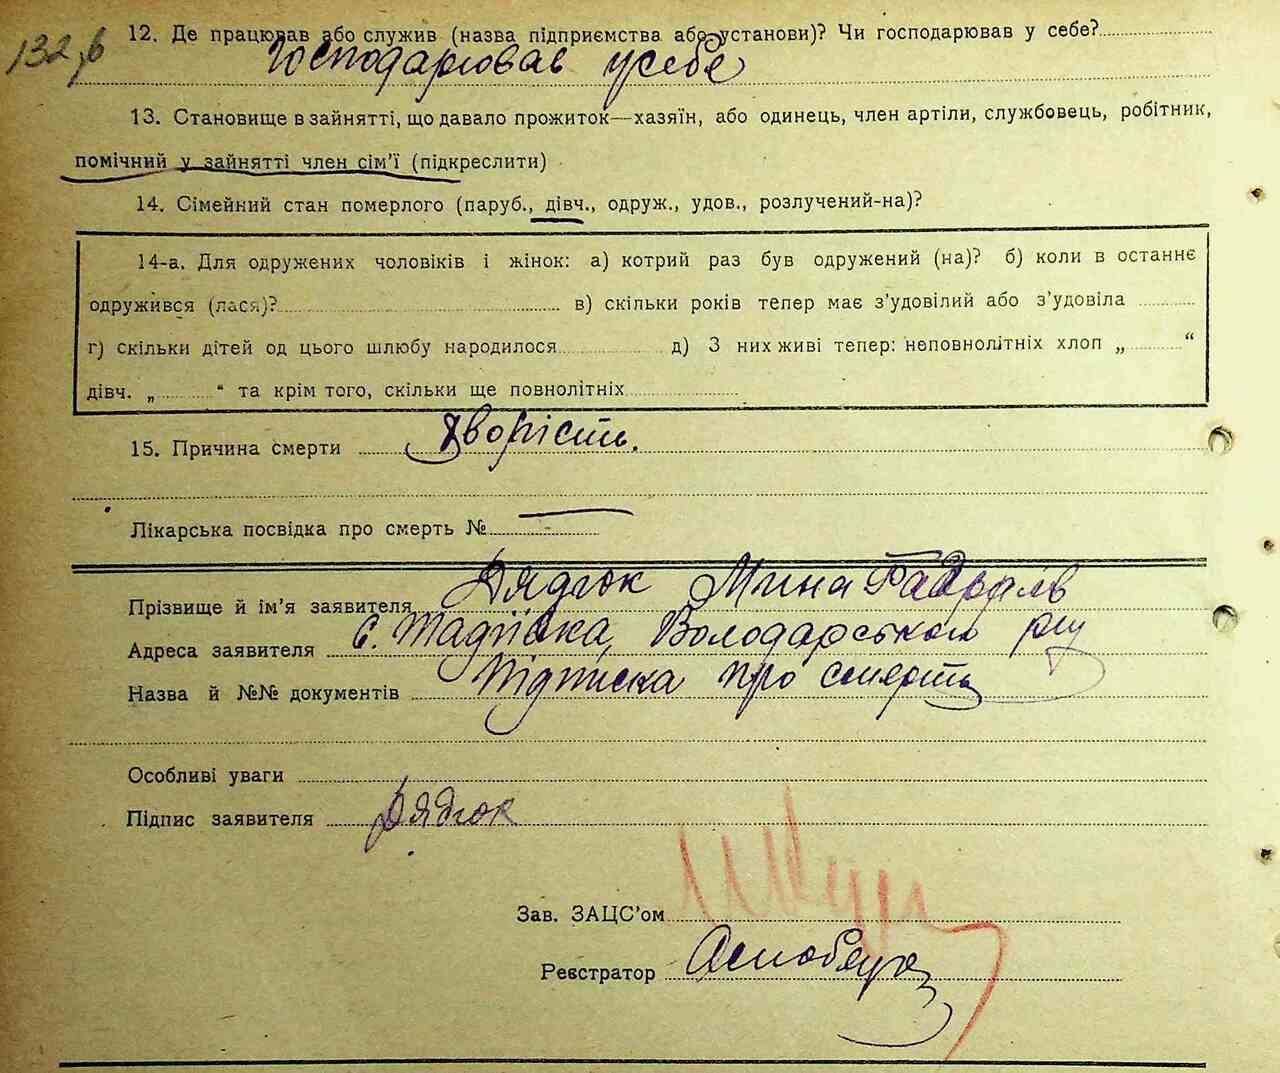 132,б
12. Де працював або служив (назва підприємства або установи)? Чи господарював у себе?
Господарював у себе
13. Становище в зайнятті, що давало прожиток—хазяїн, або одинець, член артіли, службовець, робітник,
помічний у зайнятті член сім'ї (підкреслити)
14. Сімейний стан померлого (паруб., дівч., одруж., удов., розлучений-на)?
14-а. Для одружених чоловіків і жінок: а) котрий раз був одружений (на)? б) коли в останнє
одружився (лася)? в) скільки років тепер має з'удовілий або з'удовіла
г) скільки дітей од цього шлюбу народилося д) З них живі тепер: неповнолітніх хлоп „ “
дівч. „ “ та крім того, скільки ще повнолітніх
15. Причина смерти Хворість.
Лікарська посвідка про смерть № —
Прізвище й ім'я заявителя Дядюк Мина
Адреса заявителя с. Тадіївка, Володарського р-ну
Назва й №№ документів Підписка про смерть
Особливі уваги
Підпис заявителя Дядюк
Зав. ЗАЦС'ом
Реєстратор